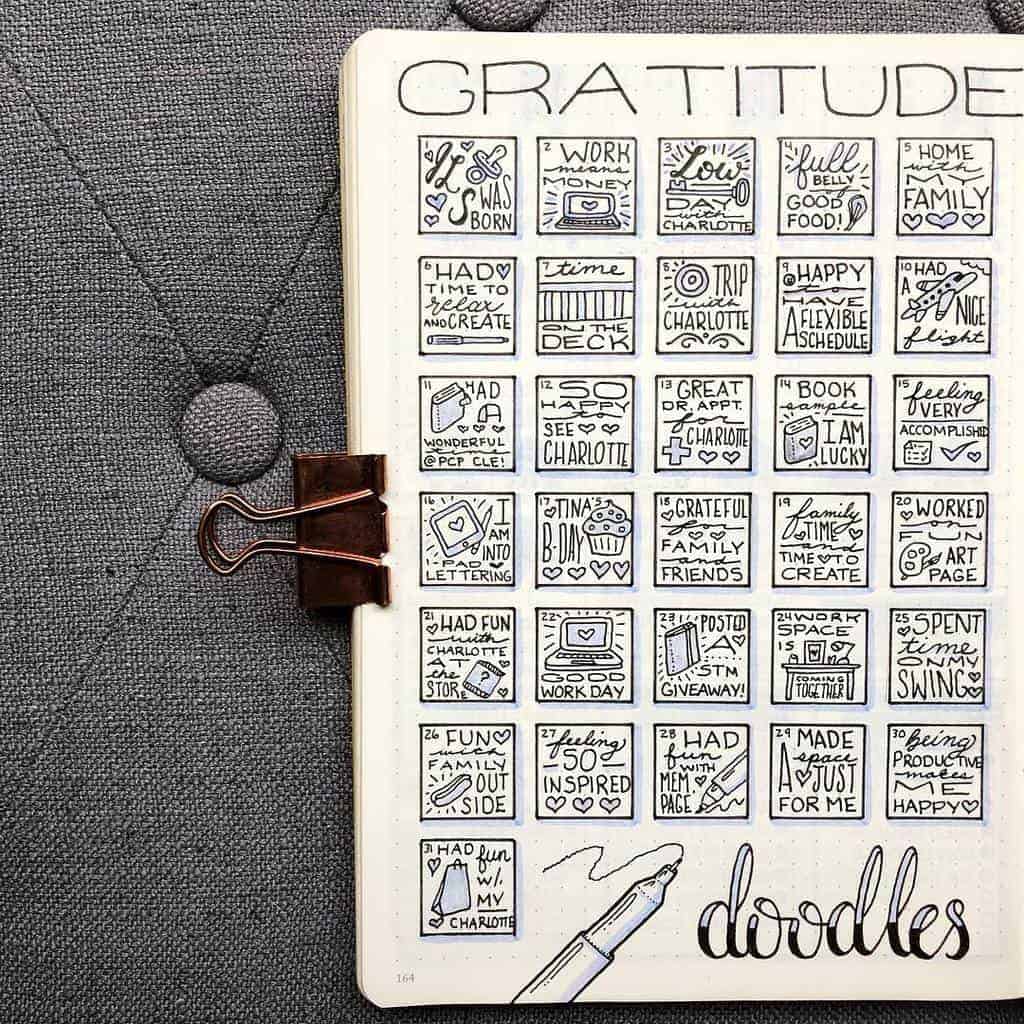 GRATITUDE
1
JL
S WAS
BORN
2 WORK
means
MONEY
3 Low
DAY
with
CHARLOTTE
4 full
BELLY
of
GOOD
FOOD!
5 HOME
with
MY
FAMILY
6 HAD
TIME TO
relax
AND CREATE
7 time
ON THE
DECK
8 TRIP
with
CHARLOTTE
9 HAPPY
to
HAVE
A FLEXIBLE
SCHEDULE
10 HAD
A
NICE
flight
11 HAD
A
WONDERFUL
@PCP CLE!
12 SO
HAPPY to
SEE
CHARLOTTE
13 GREAT
DR. APPT.
for
CHARLOTTE
14 BOOK
sample
I AM
LUCKY
15 feeling
VERY
ACCOMPLISHED
16 I
AM
INTO
I-PAD
LETTERING
17 TINA'S
B-DAY
18 GRATEFUL
for
FAMILY
and
FRIENDS
19 family
TIME
and
TIME TO
CREATE
20 WORKED
on
FUN
ART
PAGE
21 HAD FUN
with
CHARLOTTE
AT
the
STORE
?
22
GOOD
WORK DAY
23 POSTED
A
STM
GIVEAWAY!
24 WORK
SPACE
IS
COMING
TOGETHER
25 SPENT
time
ON MY
SWING
26 FUN
with
FAMILY
OUT
SIDE
27 feeling
SO
INSPIRED
28 HAD
fun
WITH
MEM.
PAGE
29 MADE
space
A JUST
FOR ME
30 being
PRODUCTIVE
makes
ME
HAPPY
31 HAD fun
w/
MY
CHARLOTTE
doodles
164